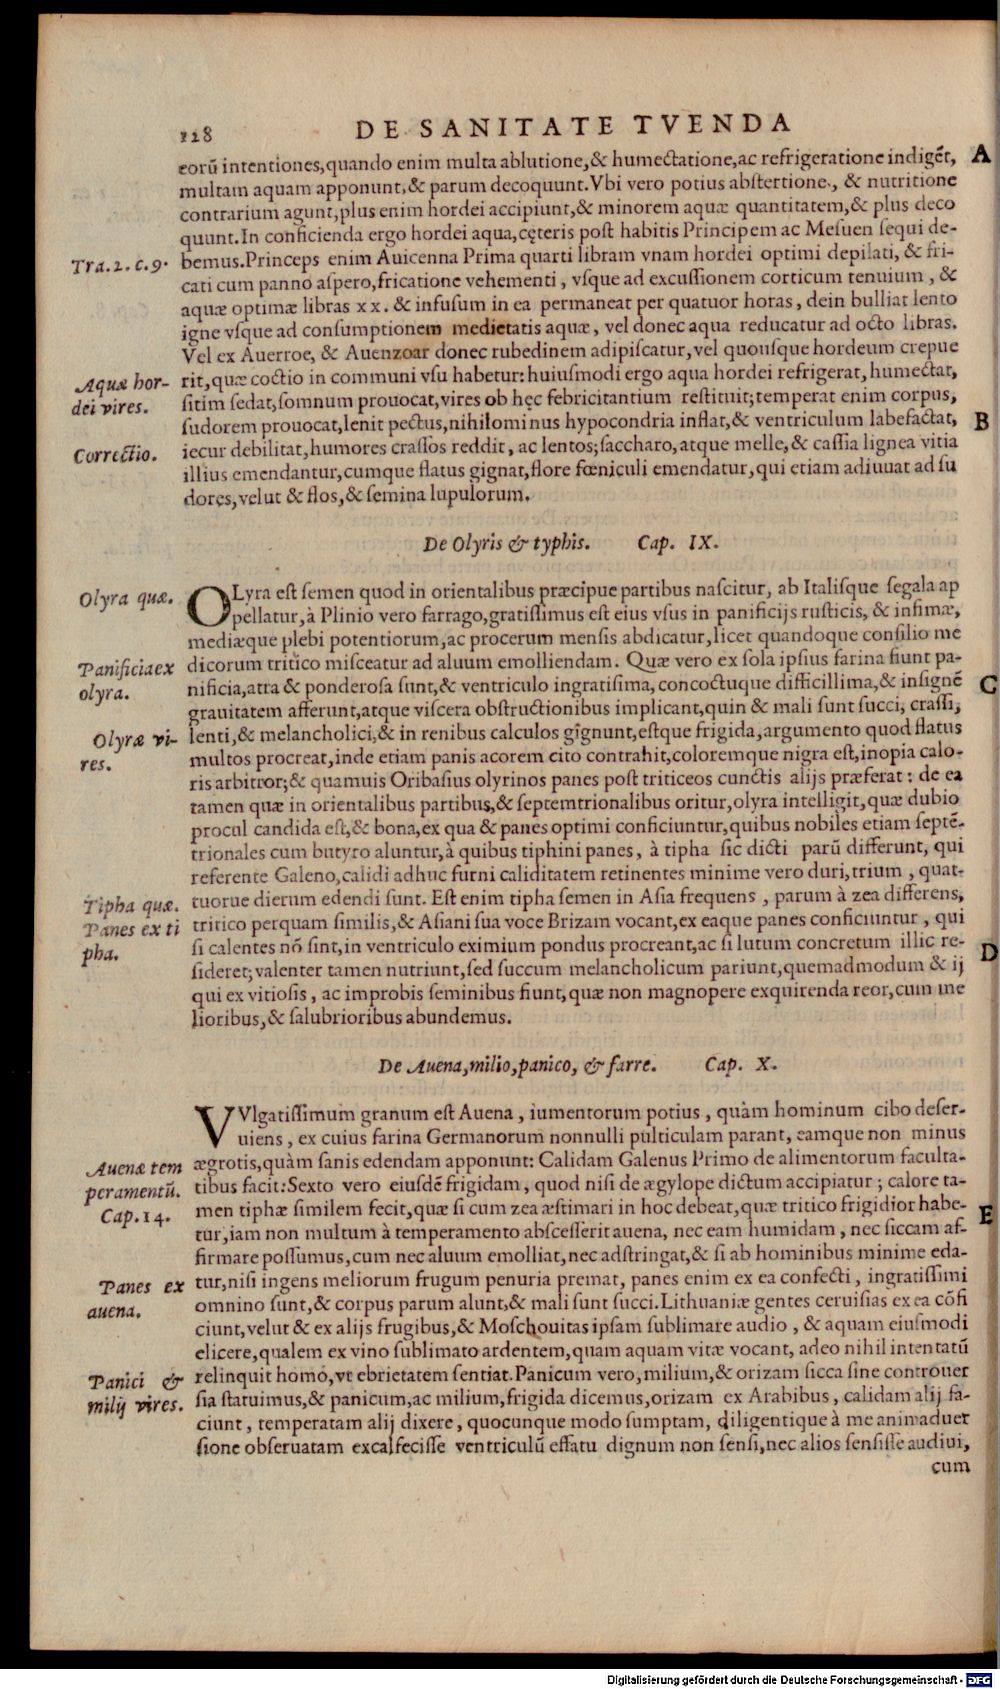 128 DE SANITATE TVENDA
eorũ intentiones,quando enim multa ablutione,& humectatione,ac refrigeratione indigẽt, A
multam aquam apponunt,& parum decoquunt.Vbi vero potius abstertione, & nutritione
contrarium agunt,plus enim hordei accipiunt,& minorem aquæ quantitatem,& plus deco
quunt.In conficienda ergo hordei aqua,cęteris post habitis Principem ac Mesuen sequi de-
Tra.2.c.9. bemus.Princeps enim Auicenna Prima quarti libram vnam hordei optimi depilati, & fri-
cati cum panno aspero,fricatione vehementi, vsque ad excussionem corticum tenuium, &
aquæ optimæ libras xx. & infusum in ea permaneat per quatuor horas, dein bulliat lento
igne vsque ad consumptionem medietatis aquæ, vel donec aqua reducatur ad octo libras.
Vel ex Auerroe, & Auenzoar donec rubedinem adipiscatur,vel quousque hordeum crepue
Aquæ hor- rit,quæ coctio in communi vsu habetur: huiusmodi ergo aqua hordei refrigerat, humectat,
dei vires. sitim sedat,somnum prouocat,vires ob hęc febricitantium restituit;temperat enim corpus,
sudorem prouocat,lenit pectus,nihilominus hypocondria inflat,& ventriculum labefactat, B
Correctio. iecur debilitat,humores crassos reddit, ac lentos;saccharo,atque melle,& cassia lignea vitia
illius emendantur,cumque flatus gignat,flore fœniculi emendatur,qui etiam adiuuat ad su
dores,velut & flos,& semina lupulorum.
De Olyris & typhis. Cap. IX.
Olyra quæ. OLyra est semen quod in orientalibus præcipue partibus nascitur, ab Italisque segala ap
pellatur,à Plinio vero farrago,gratissimus est eius vsus in panificijs rusticis, & infimæ,
mediæque plebi potentiorum,ac procerum mensis abdicatur,licet quandoque consilio me
Panificia ex dicorum tritico misceatur ad aluum emolliendam. Quæ vero ex sola ipsius farina fiunt pa-
olyra. nificia,atra & ponderosa sunt,& ventriculo ingratisima,concoctuque difficillima,& insignẽ C
grauitatem afferunt,atque viscera obstructionibus implicant,quin & mali sunt succi, crassi,
Olyræ vi- lenti,& melancholici,& in renibus calculos gignunt,estque frigida,argumento quod flatus
res. multos procreat,inde etiam panis acorem cito contrahit,coloremque nigra est,inopia calo-
ris arbitror;& quamuis Oribasius olyrinos panes post triticeos cunctis alijs præferat: de ea
tamen quæ in orientalibus partibus,& septemtrionalibus oritur,olyra intelligit,quæ dubio
procul candida est,& bona,ex qua & panes optimi conficiuntur,quibus nobiles etiam septẽ-
trionales cum butyro aluntur,à quibus tiphini panes, à tipha sic dicti parũ differunt, qui
referente Galeno,calidi adhuc furni caliditatem retinentes minime vero duri,trium, quat-
Tipha quæ. tuorue dierum edendi sunt. Est enim tipha semen in Asia frequens, parum à zea differens,
Panes ex ti tritico perquam similis,& Asiani sua voce Brizam vocant,ex eaque panes conficiuntur, qui
pha. si calentes nõ sint,in ventriculo eximium pondus procreant,ac si lutum concretum illic re- D
sideret;valenter tamen nutriunt,sed succum melancholicum pariunt,quemadmodum & ij
qui ex vitiosis, ac improbis seminibus fiunt,quæ non magnopere exquirenda reor,cum me
lioribus,& salubrioribus abundemus.
De Auena,milio,panico, & farre. Cap. X.
VVlgatissimum granum est Auena, iumentorum potius, quàm hominum cibo deser-
uiens, ex cuius farina Germanorum nonnulli pulticulam parant, eamque non minus
Auenæ tem ægrotis,quàm sanis edendam apponunt: Calidam Galenus Primo de alimentorum faculta-
peramentũ. tibus facit:Sexto vero eiusdẽ frigidam, quod nisi de ægylope dictum accipiatur; calore ta-
Cap.14. men tiphæ similem fecit,quæ si cum zea æstimari in hoc debeat,quæ tritico frigidior habe- E
tur,iam non multum à temperamento abscesserit auena, nec eam humidam, nec siccam af-
firmare possumus,cum nec aluum emolliat,nec adstringat,& si ab hominibus minime eda-
Panes ex tur,nisi ingens meliorum frugum penuria premat, panes enim ex ea confecti, ingratissimi
auena. omnino sunt,& corpus parum alunt,& mali sunt succi.Lithuaniæ gentes ceruisias ex ea cõfi
ciunt,velut & ex alijs frugibus,& Moschouitas ipsam sublimare audio, & aquam eiusmodi
elicere,qualem ex vino sublimato ardentem,quam aquam vitæ vocant, adeo nihil intentatũ
Panici & relinquit homo,vt ebrietatem sentiat.Panicum vero,milium,& orizam sicca sine controuer
milij vires. sia statuimus,& panicum,ac milium,frigida dicemus,orizam ex Arabibus, calidam alij fa-
ciunt, temperatam alij dixere, quocunque modo sumptam, diligentique à me animaduer
sione obseruatam excalfecisse ventriculũ effatu dignum non sensi,nec alios sensisse audiui,
cum
Digitalisierung gefördert durch die Deutsche Forschungsgemeinschaft - DFG